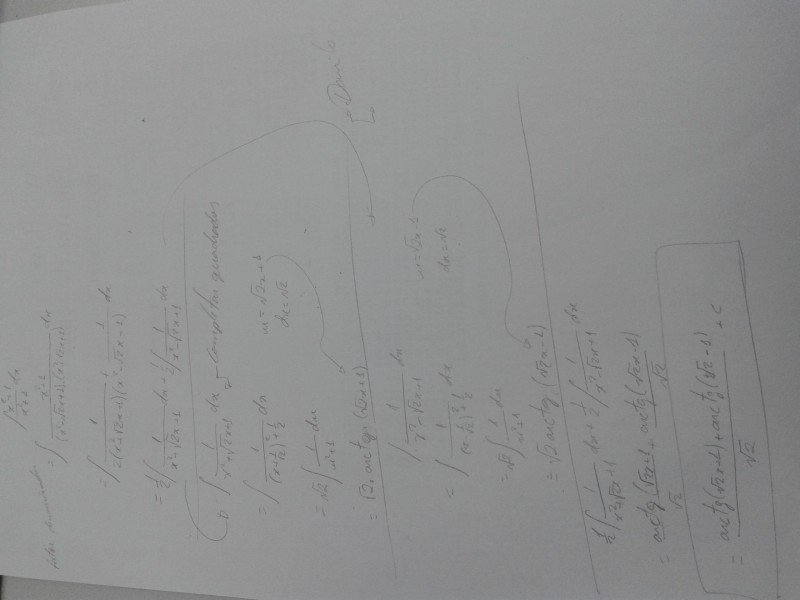 ∫ x²+1 / x⁴+1 dx
fator
= ∫ x²+1 / (x²-√2x+1)(x²+√2x+1) dx
= ∫ 1 / 2(x²+√2x+1) + 1 / 2(x²-√2x+1) dx
= 1/2 ∫ 1 / x²+√2x+1 dx + 1/2 ∫ 1 / x²-√2x+1 dx
∫ 1 / x²+√2x+1 dx → completar quadrados
= ∫ 1 / (x+1/√2)²+1/2 dx
u=√2x+1
du=√2
= √2 ∫ 1 / u²+1 du
= √2 · arctg (√2x+1)
∫ 1 / x²-√2x+1 dx
u=√2x-1
du=√2
= ∫ 1 / (x-1/√2)²+1/2 dx
= √2 ∫ 1 / u²+1 du
= √2 arctg (√2x-1)
1/2 ∫ 1 / x²+√2x+1 dx + 1/2 ∫ 1 / x²-√2x+1 dx
= arctg (√2x+1) / √2 + arctg (√2x-1) / √2
= arctg (√2x+1) + arctg (√2x-1) / √2 + C